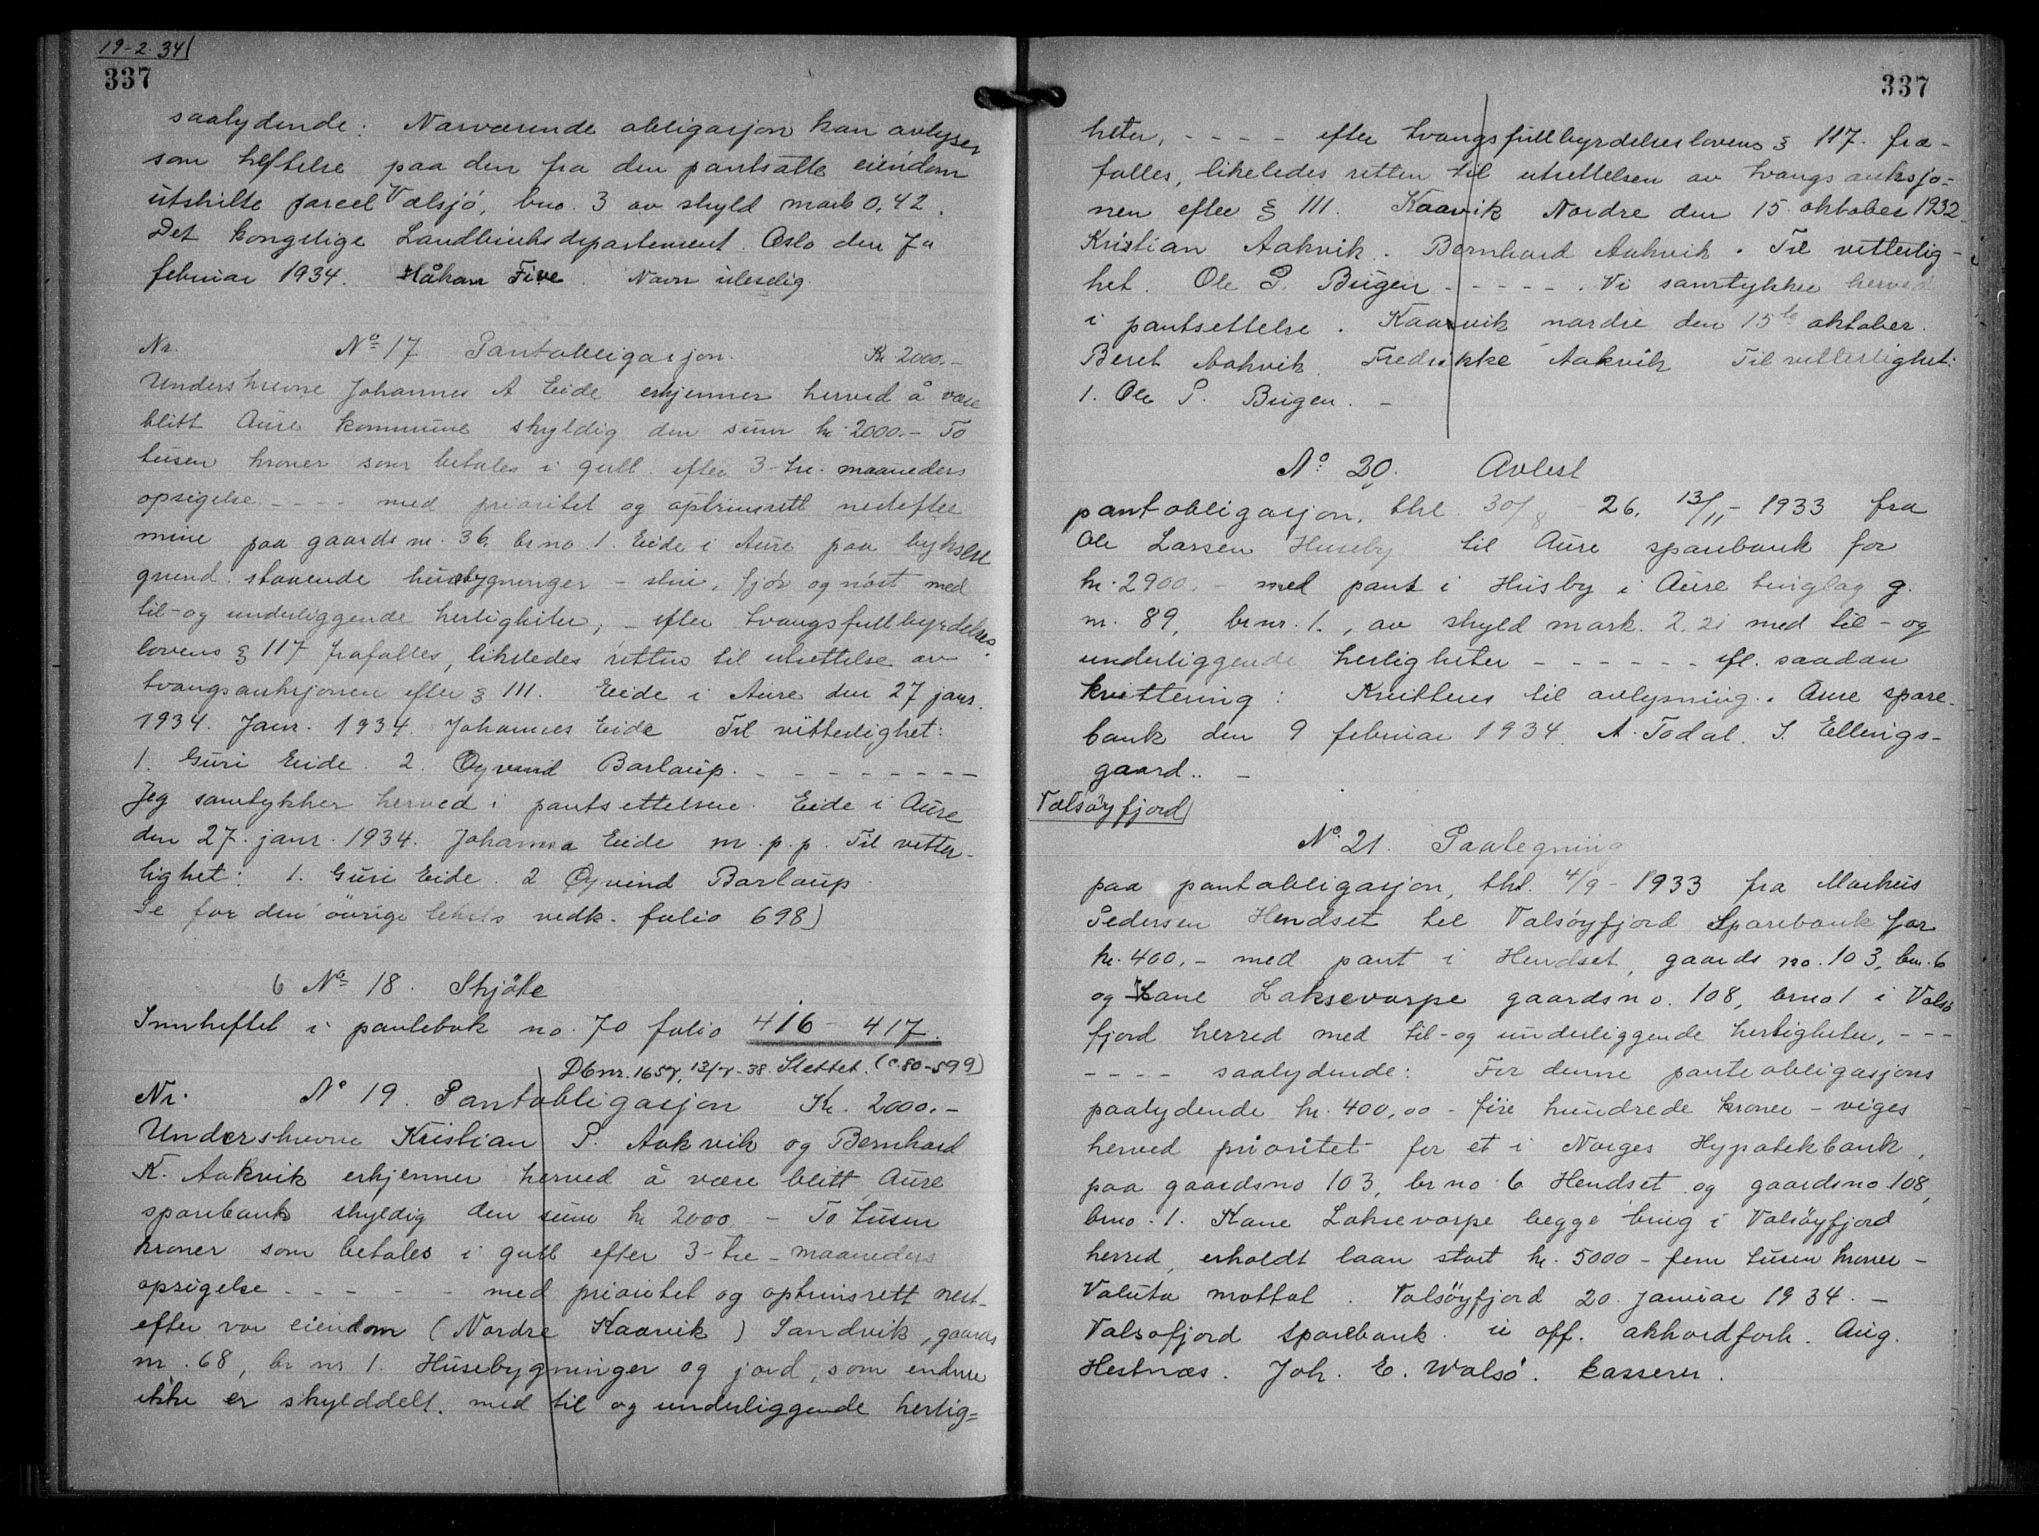 19-2-34
337
saalydende: Nærværende obligasjon kan avlyses
som heftelse paa den fra den pantsatte eiendom
utskilte parcel Valsjö, bno. 3 av skyld mark 0,42.
Det kongelige Landbruksdepartement. Oslo den 7a
februar 1934. Håkon Five. Navn uleselig.
Nr. No 17 Pantobligasjon. Kr 2000.-
Underskrevne Johannes A Eide erkjenner herved å være
blitt Aure kommune skyldig den sum kr. 2000.- To
tusen kroner som betales i gull efter 3-tre-maaneders
opsigelse - - - - med prioritet og optrinsrett nestefter
mine paa gaards nr. 36, br.no. 1. Eide i Aure paa bykslet
grund staaende husbygninger - stue, fjös og nöst med
til- og underliggende herligheter, - efter tvangsfullbyrdelses-
lovens § 117 frafalles, likeledes retten til utsettelse av
tvangsauksjonen efter § 111. Eide i Aure den 27 janr.
1934. Janr. 1934. Johannes Eide Til vitterlighet:
1. Guri Eide. 2. Öyvind Barlaup. - - - - - - - -
Jeg samtykker herved i pantsettelsen. Eide i Aure
den 27. janr. 1934. Johanna Eide m.p.p. Til vitter-
lighet: 1. Guri Eide. 2 Öyvind Barlaup
Se for den övrige teksts vedk. folio 698)
6 No 18. Skjöte
Innheftet i pantebok no. 70 folio 416 - 417.
Dbnr. 1657, 13/7-38. Slettet. (P.80-599)
Nr. No 19. Pantobligasjon Kr. 2000.-
Underskrevne Kristian P. Aakvik og Bernhard
K. Aakvik erkjenner herved å være blitt Aure
sparebank skyldig den sum kr 2000 - To tusen
kroner som betales i gull efter 3-tre-maaneders
opsigelse - - - - - med prioritet og optrinsrett nest-
efter vor eiendom (Nordre Kaarvik) Sandvik, gaards
nr. 68, br nr 1. Husebygninger og jord, som endnu
ikke er skylddelt. med til og underliggende herlig=
337
heter, - - - - efter tvangsfullbyrdelseslovens § 117. fra-
falles, likeledes retten til utsettelsen av tvangsauksjo-
nen efter § 111. Kaarvik Nordre den 15. oktober 1932.
Kristian Aakvik. Bernhard Aakvik. Til vitterlig-
het. Ole P. Bugen - - - - - . Vi samtykker herved
i pantsettelse. Kaarvik nordre den 15de oktober.
Beret Aakvik. Fredrikke Aakvik Til vitterlighet:
1. Ole P. Bugen. -
No 20. Avlest
pantobligasjon, thl. 30/8 - 26. 13/11 - 1933 fra
Ole Larsen Huseby til Aure sparebank for
kr. 2900.- med pant i Husby i Aure tinglag g.
nr. 89, brnr. 1., av skyld mark. 2 21 med til- og
underliggende herligheter - - - - - - efl. saadan
kvittering: Kvitteres til avlysning. Aure spare-
bank den 9 februar 1934. A. Todal. I. Ellings-
gaard.. -
Valsöyfjord
No. 21. Paategning
paa pantobligasjon, thl. 4/9 - 1933 fra Markus
Pedersen Hendset til Valsöyfjord Sparebank for
kr. 400.- med pant i Hendset, gaards no. 103, bno. 6
og Kane Laksevarpe gaardsno. 108, brno 1 i Valsö
fjord herred med til- og underliggende herligheter, - - -
- - - - saalydende: For denne panteobligasjons
paalydende kr. 400,00 - fire hundrede kroner - viges
herved prioritet for et i Norges Hypotekbank,
paa gaardsno 103, br no 6 Hendset og gaardsno 108,
brno. 1. Kane Laksevarpe begge brug i Valsöyfjord
herred, erholdt laan stort kr. 5000 - fem tusen kroner -
Valuta mottat. Valsöyfjord 20. januar 1934. -
Valsøfjord Sparebank. u off. akkordforh. Aug.
Hestnæs. Joh. E. Walsö. kasserer.